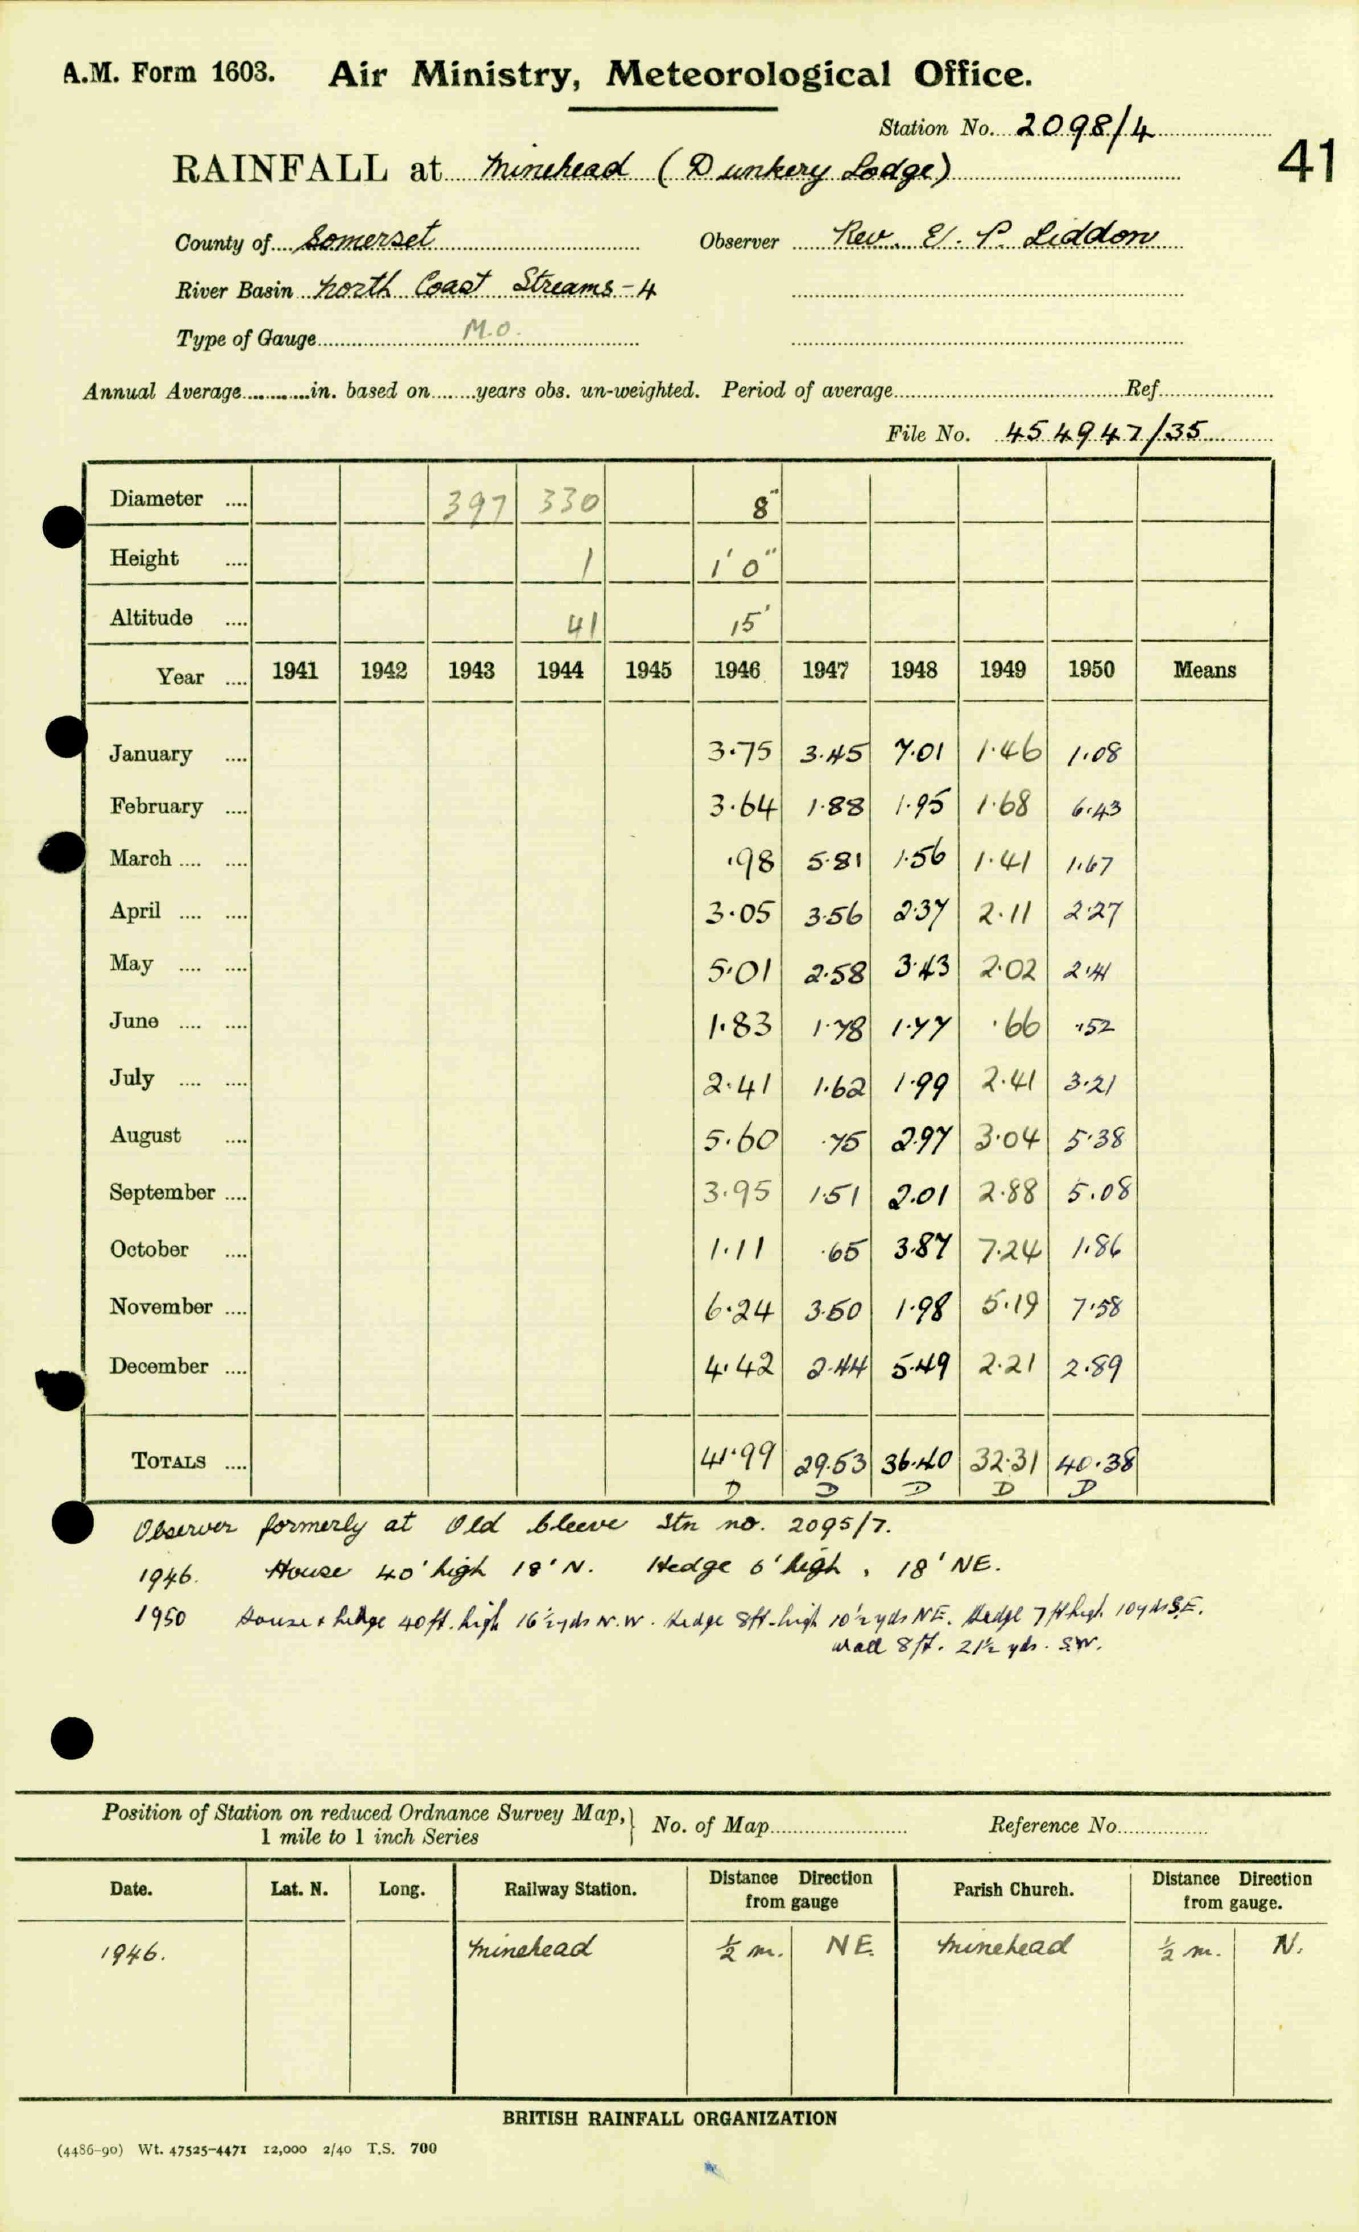 A.M. Form 1603. Air Ministry, Meteorological Office.
Station No. 2098/4
RAINFALL at Minehead (Dunkery Lodge)
41
County of Somerset Observer Rev. E. P. Liddon
River Basin North Coast Streams - 4
Type of Gauge M.O.
Annual Average in. based on years obs. un-weighted. Period of average Ref.
File No. 454947/35
Diameter 397 330 8"
Height 1 1' 0"
Altitude 41 15'
Year 1941 1942 1943 1944 1945 1946 1947 1948 1949 1950 Means
January 3.75 3.45 7.01 1.46 1.08
February 3.64 1.88 1.95 1.68 6.43
March .98 5.81 1.56 1.41 1.67
April 3.05 3.56 2.37 2.11 2.27
May 5.01 2.58 3.43 2.02 2.41
June 1.83 1.78 1.77 .66 .52
July 2.41 1.62 1.99 2.41 3.21
August 5.60 .75 2.97 3.04 5.38
September 3.95 1.51 2.01 2.88 5.08
October 1.11 .65 3.87 7.24 1.86
November 6.24 3.50 1.98 5.19 7.58
December 4.42 2.44 5.49 2.21 2.89
TOTALS 41.99 29.53 36.40 32.31 40.38
D D D D D
Observer formerly at Old Cleeve Stn no. 2095/7.
1946. House 40' high 18' N. Hedge 6' high, 18' NE.
1950 House & hedge 40ft. high 16½ yds N.W. Hedge 8ft. high 10½ yds NE. Hedge 7 ft high 10 yds S.E.
Wall 8ft. 21½ yds. S.W.
Position of Station on reduced Ordnance Survey Map, No. of Map Reference No.
1 mile to 1 inch Series
Date. Lat. N. Long. Railway Station. Distance Direction from gauge Parish Church. Distance Direction from gauge.
1946. Minehead ½ m. NE. Minehead ½ m. N.
BRITISH RAINFALL ORGANIZATION
(4486-90) Wt. 47525-4471 12,000 2/40 T.S. 700